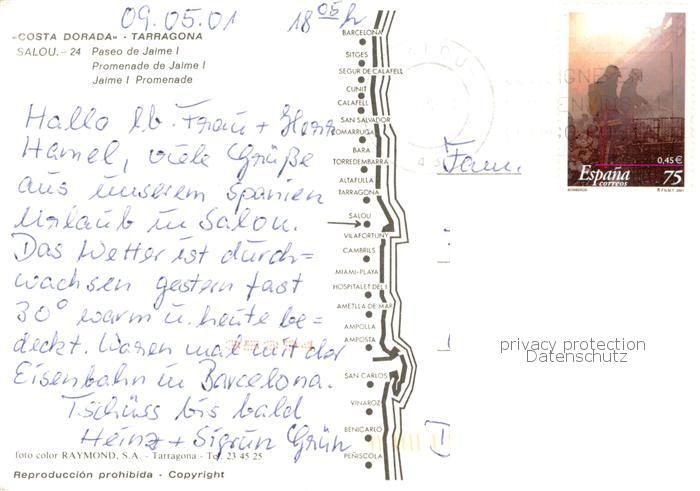 09.05.01 18 05 h
«COSTA DORADA» - TARRAGONA
SALOU.- 24 Paseo de Jaime I
Promenade de Jaime I
Jaime I Promenade
Hallo lb. Frau + Herr
Hamel, viele Grüße
aus unserem Spanien
Urlaub in Salou.
Das Wetter ist durch=
wachsen gestern fast
30° warm u. heute be=
deckt. Waren mal mit der
Eisenbahn in Barcelona.
Tschüss bis bald
Heinz + Sigrun Grün
foto color RAYMOND, S.A. - Tarragona - Tel. 23 45 25
Reproducción prohibida - Copyright
BARCELONA
SITGES
SEGUR DE CALAFELL
CUNIT
CALAFELL
SAN SALVADOR
COMARRUGA
BARA
TORREDEMBARRA
ALTAFULLA
TARRAGONA
SALOU
VILAFORTUNY
CAMBRILS
MIAMI-PLAYA
HOSPITALET DEL I
AMETLLA DE MAR
AMPOLLA
AMPOSTA
SAN CARLOS
VINAROZ
BENICARLO
PEÑISCOLA
Fam.
D
0,45 €
España
correos
75
BOMBEROS
R.F.N.M.T. 2001
privacy protection
Datenschutz